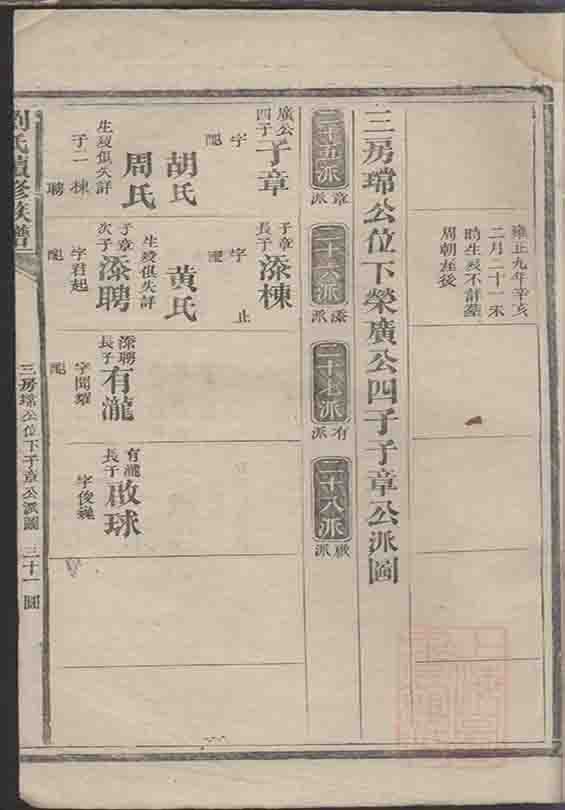 雍正九年辛亥
二月二十一未
時生歿不詳墓
周朝座後
三房瑺公位下榮廣公四子子章公派圖
二十五派
章派
二十六派
添派
二十七派
有派
二十八派
啟派
廣公四子
子章
字
配
胡氏
周氏
生歿俱失詳
子二棟
聘
子章長子
添棟
字
止
配
黃氏
生歿俱失詳
子章次子
添聘
字君起
配
添聘長子
有瀧
字聞耀
配
有瀧長子
啟球
字俊巍
劉氏續修族譜
三房瑺公位下子章公派圖
三十一
圖